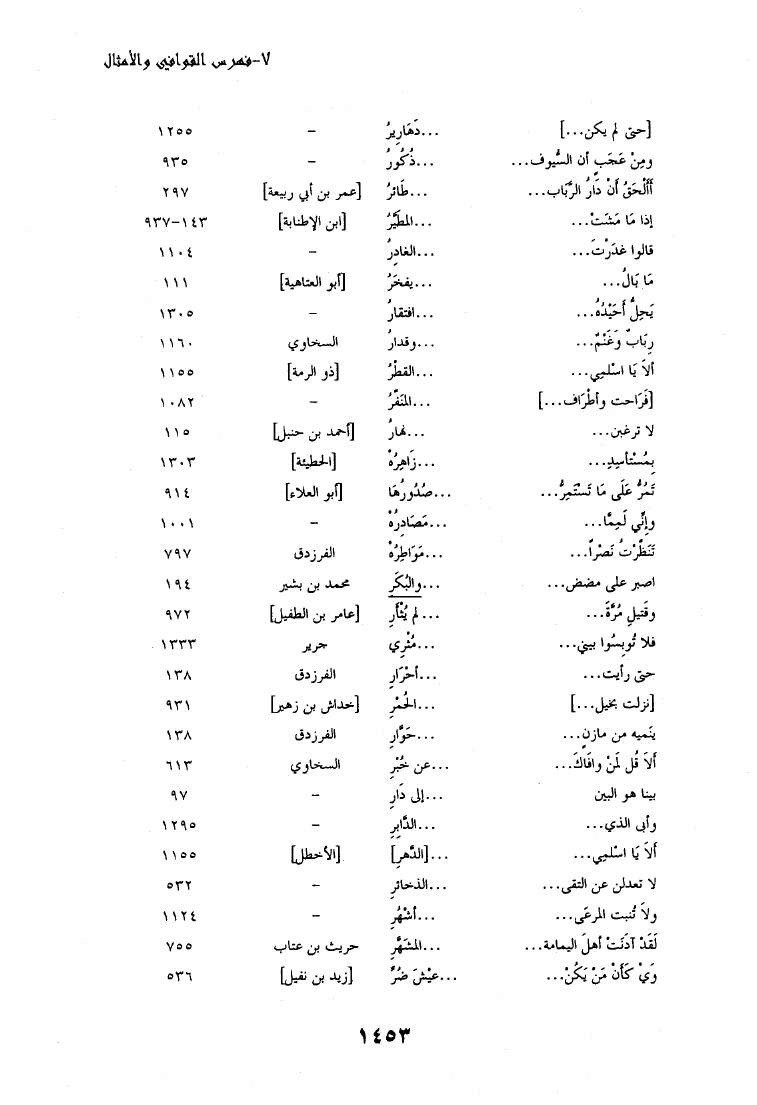 ٧-فهرس القوافي والأمثال
[حتى لم يكن...] ...دَهَارِيرُ – ١٢٥٥
ومِنْ عَجَبٍ أن السُّيوف... ...ذُكُورُ – ٩٣٥
أَأَلْحَقُ أَنْ دَارُ الرَّبَاب... ...طَائرُ [عمر بن أبي ربيعة] ٢٩٧
إذا مَا مَشَتْ... ...المطَيَّرُ [ابن الإطنابة] ١٤٣-٩٣٧
قالوا غدَرْتَ... ...الغادِرُ – ١١٠٤
مَا بَالُ... ...يفخَرُ [أبو العتاهية] ١١١
يَحِلُّ أُحَيْدُهُ... ...افتقارُ – ١٣٠٥
رِبَابٌ وَغَنْمٌ... ...وقدارُ السخاوي ١١٦٠
ألاَ يَا اسْلمِي... ...القطْرُ [ذو الرمة] ١١٥٥
[فَرَاحت وأطْرَاف...] ...المنَفَّرُ – ١٠٨٢
لا ترغبن... ...نهارُ [أحمد بن حنبل] ١١٥
بِمُسْتأسِدِ... ...زَاهِرُهْ [الحطيئة] ١٣٠٣
تَمُرُّ عَلَى مَا تَسْتَمِرُّ... ...صُدُورُهَا [أبو العلاء] ٩١٤
وإنِّي لَمِمَّا... ...مَصَادِرُهْ – ١٠٠١
تَنَظَّرْتُ نَصْراً... ...مَوَاطِرُهْ الفرزدق ٧٩٧
اصبر على مضض... ...والبُكَرِ محمد بن بشير ١٩٤
وقتيلِ مُرَّةَ... ...لم يُثْأرِ [عامر بن الطفيل] ٩٧٢
فلا تُوبِسُوا بيني... ...مُثْرِي جرير ١٣٣٣
حتى رأيت... ...أحْرَارِ الفرزدق ١٣٨
[نزلت بخيل...] ...الحُمْرِ [خداش بن زهير] ٩٣١
ينَميه من مازنٍ... ...خَوَّارِ الفرزدق ١٣٨
أَلاَ قُل لمَنْ وافَاكَ... ...عن خُبْرِ السخاوي ٦١٣
بينا هو البين ...إلى دَارِ – ٩٧
وأبى الذي... ...الدَّابِرِ – ١٢٩٥
أَلاَ يَا اسْلمِي... ...[الدَّهرِ] [الأخطل] ١١٥٥
لا تعدلن عن التقى... ...الذخائرِ – ٥٣٢
ولاَ تُنبت المرعَى... ...أَشْهُرِ – ١١٢٤
لَقَدْ آذَنَتْ أهلَ اليمامة... ...المشَهَّرِ حريث بن عتاب ٧٥٥
وَيْ كَأَنْ مَنْ يَكُنْ... ...عيْشَ ضُرِّ [زيد بن نفيل] ٥٣٦
١٤٥٣